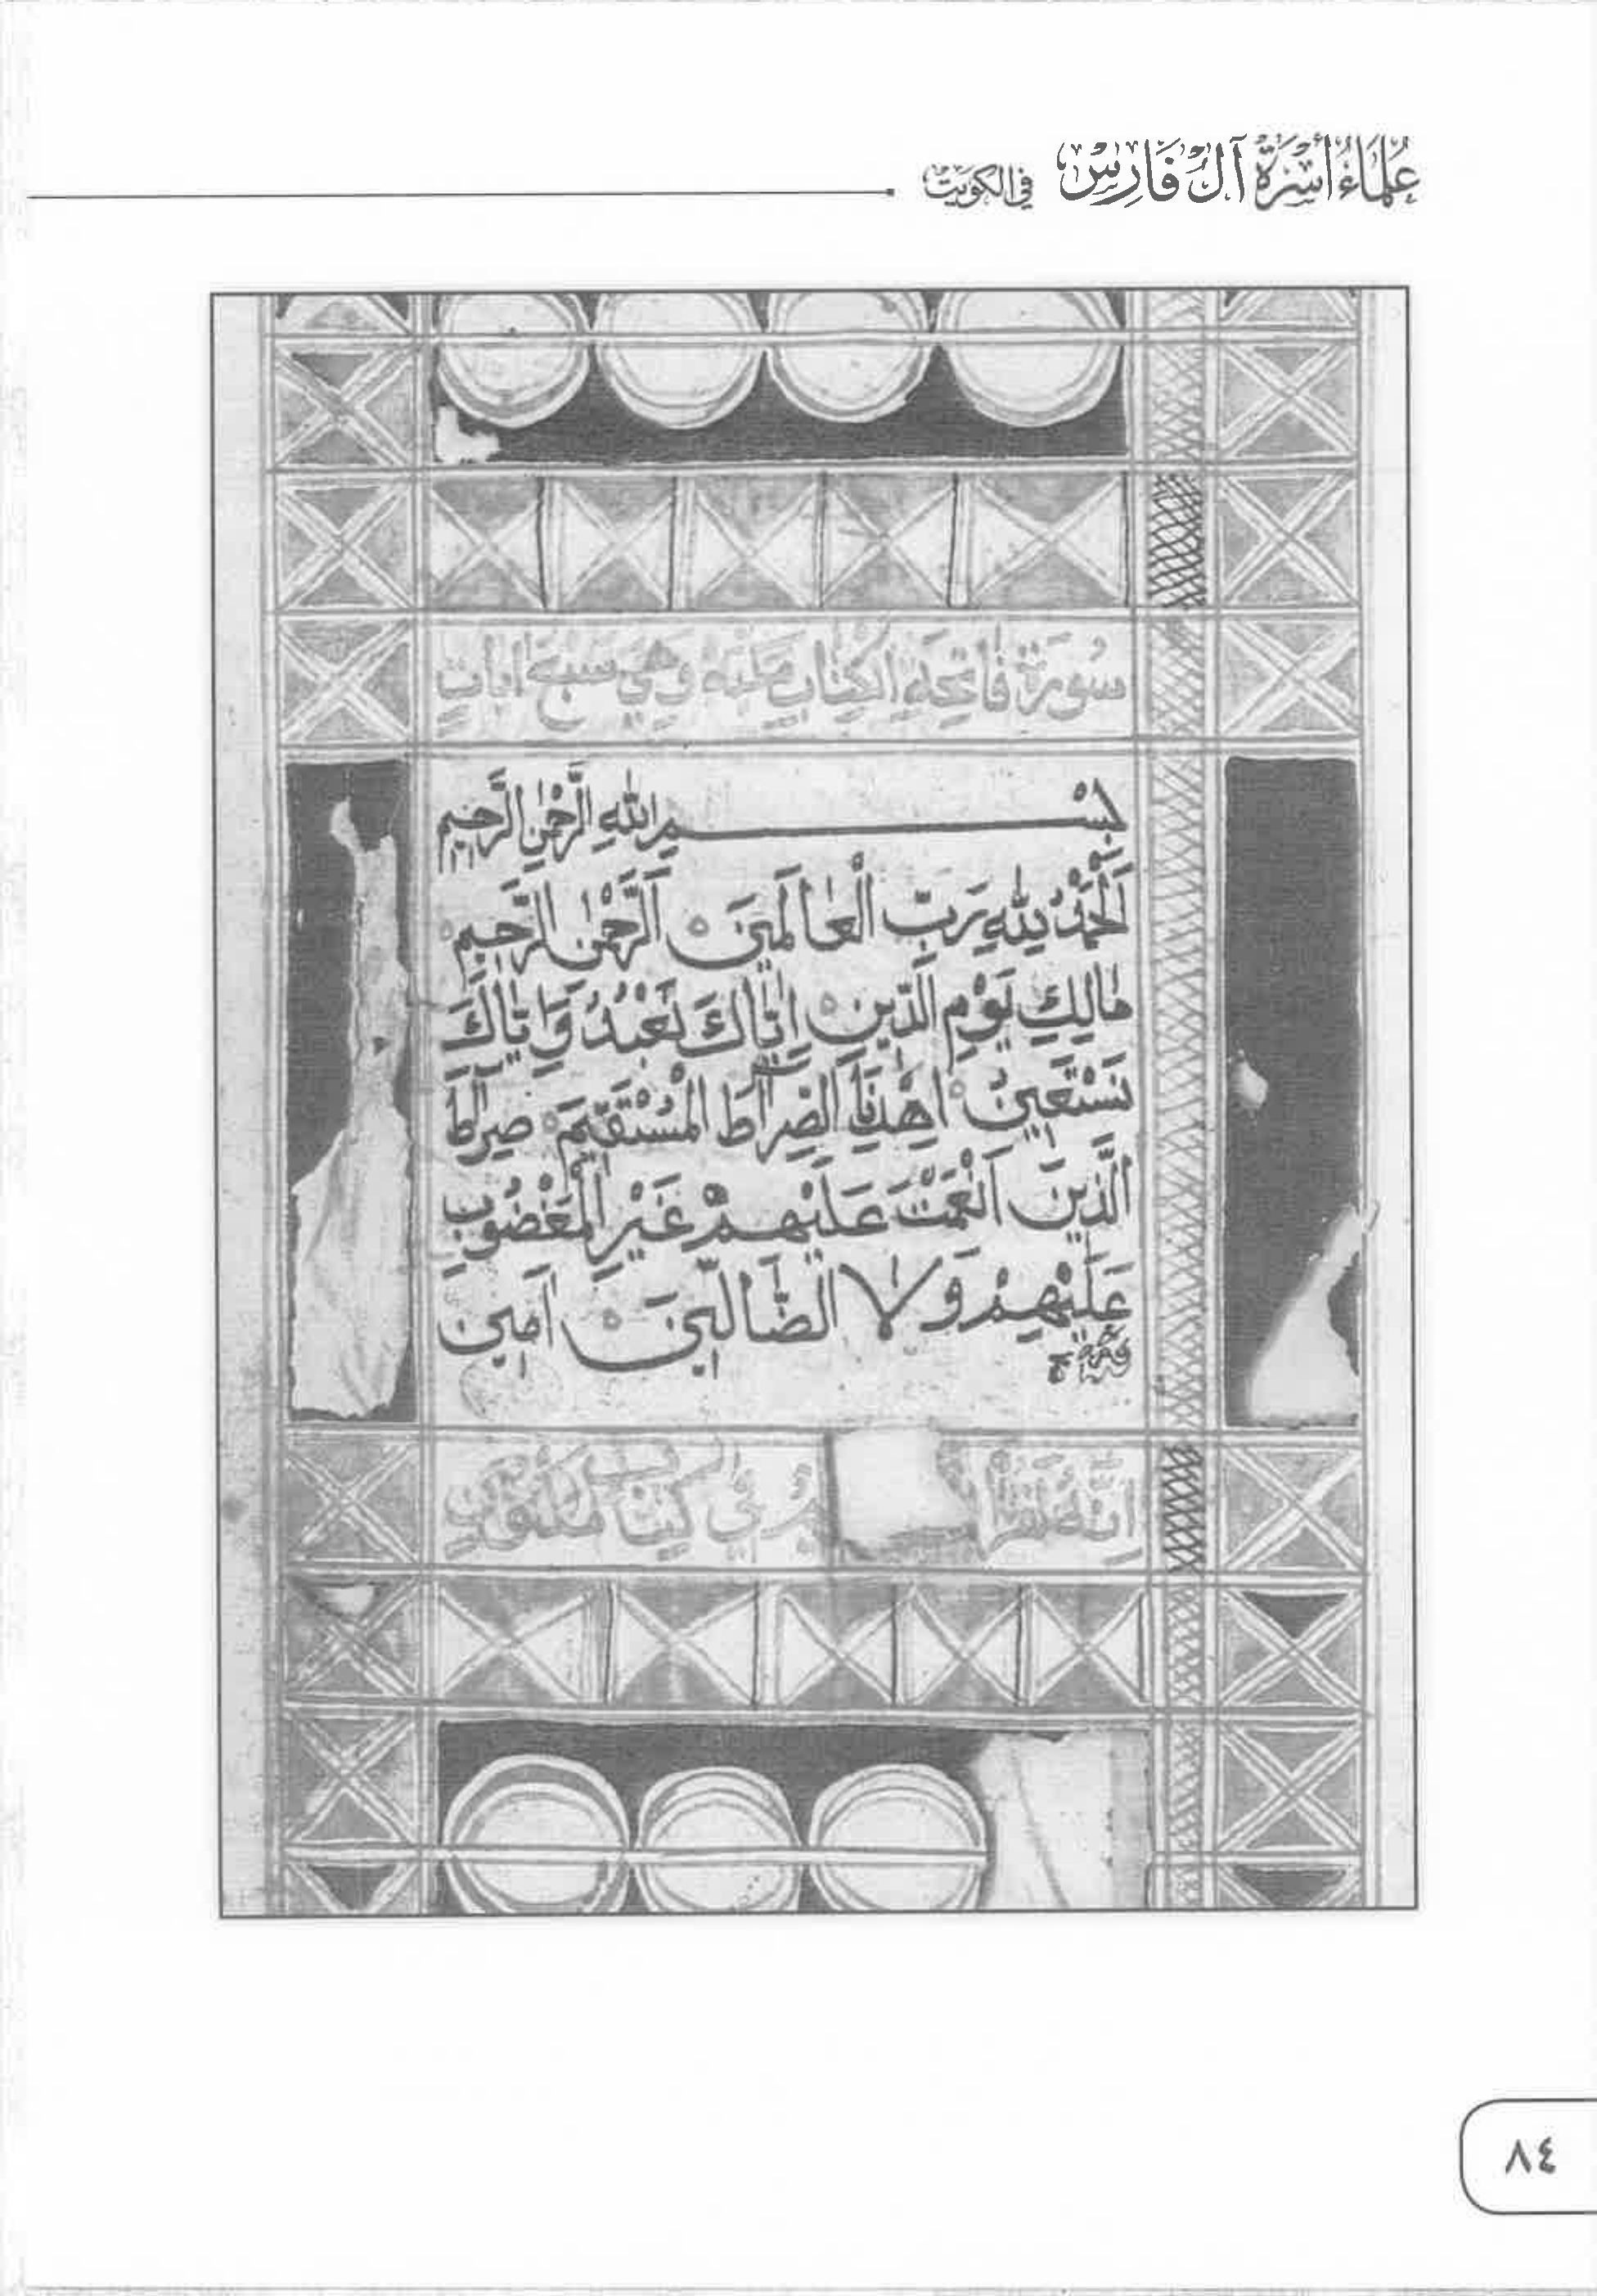 عُلَمَاءُ أُسْرَةِ آلِ فَارِسْ فِي الكُوَيْت
سُورَةُ فَاتِحَةِ الْكِتَابِ وَهِيَ سَبْعَ اٰيَاتٍ
بِسْمِ اللهِ الرَّحْمٰنِ الرَّحِيمِ
اَلْحَمْدُ لِلّٰهِ رَبِّ الْعٰالَمِينَ اَلرَّحْمٰنِ الرَّحِيمِ
مٰالِكِ يَوْمِ الدِّينِ اِيّٰاكَ نَعْبُدُ وَاِيّٰاكَ
نَسْتَعِينُ اِهْدِنَا الصِّرَاطَ الْمُسْتَقِيمَ صِرَاطَ
الَّذِينَ اَنْعَمْتَ عَلَيْهِمْ غَيْرِ الْمَغْضُوبِ
عَلَيْهِمْ وَلَا الضَّالِّينَ اٰمِين
اِنَّهُ فِي كِتَابٍ مَكْنُونٍ
٨٤